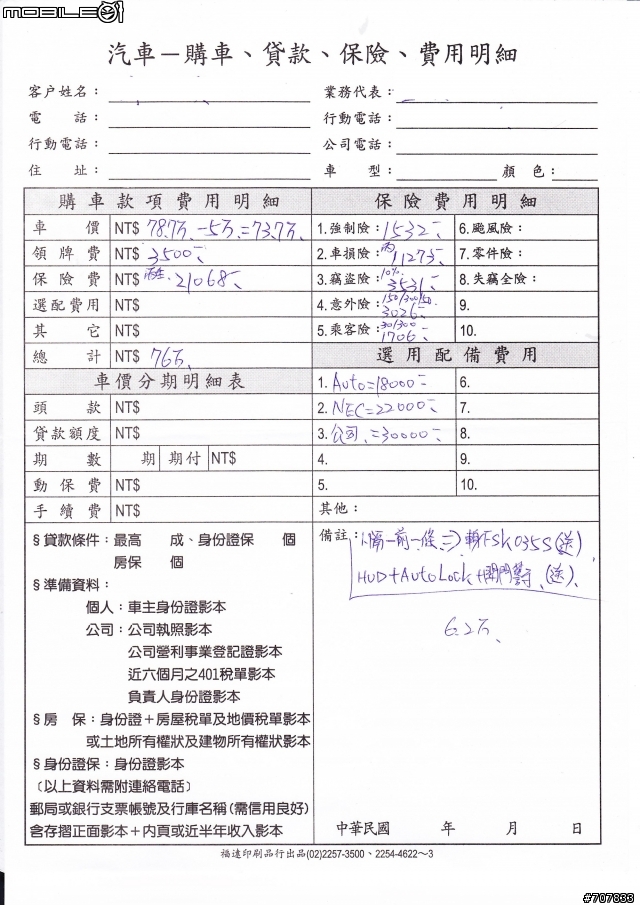 MOBILE01
汽車－購車、貸款、保險、費用明細
客戶姓名： 業務代表：
電　　話： 行動電話：
行動電話： 公司電話：
住　　址： 車　　型： 顏　色：
購車款項費用明細 保險費用明細
車　　價 NT$ 78.7万－5万＝73.7万 1.強制險：1532 6.颱風險：
領 牌 費 NT$ 3500 2.車損險：丙 11273 7.零件險：
保 險 費 NT$ 21068 3.竊盜險：10% 3531 8.失竊全險：
選配費用 NT$ 4.意外險：150/300/50 3026 9.
其　　它 NT$ 5.乘客險：30/300 1706 10.
總　　計 NT$ 76万 選用配備費用
車價分期明細表 1. Auto=18000 6.
頭　　款 NT$ 2. NEC=22000 7.
貸款額度 NT$ 3. 公司=30000 8.
期　　數 期 期付 NT$ 4. 9.
動 保 費 NT$ 5. 10.
手 續 費 NT$ 其他：
§貸款條件：最高　成、身份證保　個
房保　個
§準備資料：
個人：車主身份證影本
公司：公司執照影本
公司營利事業登記證影本
近六個月之401稅單影本
負責人身份證影本
§房　保：身份證＋房屋稅單及地價稅單影本
或土地所有權狀及建物所有權狀影本
§身份證保：身份證影本
（以上資料需附連絡電話）
郵局或銀行支票帳號及行庫名稱(需信用良好)
含存摺正面影本＋內頁或近半年收入影本
備註：隔－前一條 SK035S(送)
HUD+AutoLock+開門警(送)
6.2万
中華民國　　年　　月　　日
福達印刷品行出品(02)2257-3500、2254-4622～3
#707833